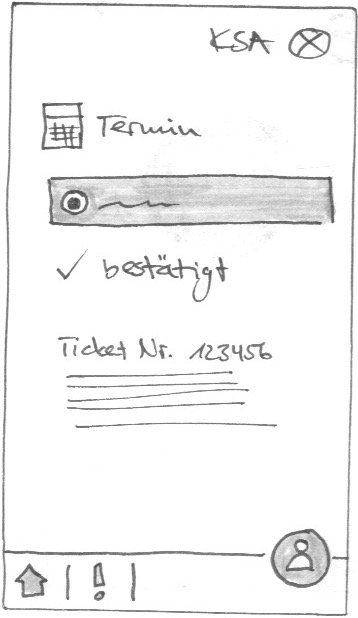 KSA
Termin
✓ bestätigt
Ticket Nr. 123456
!